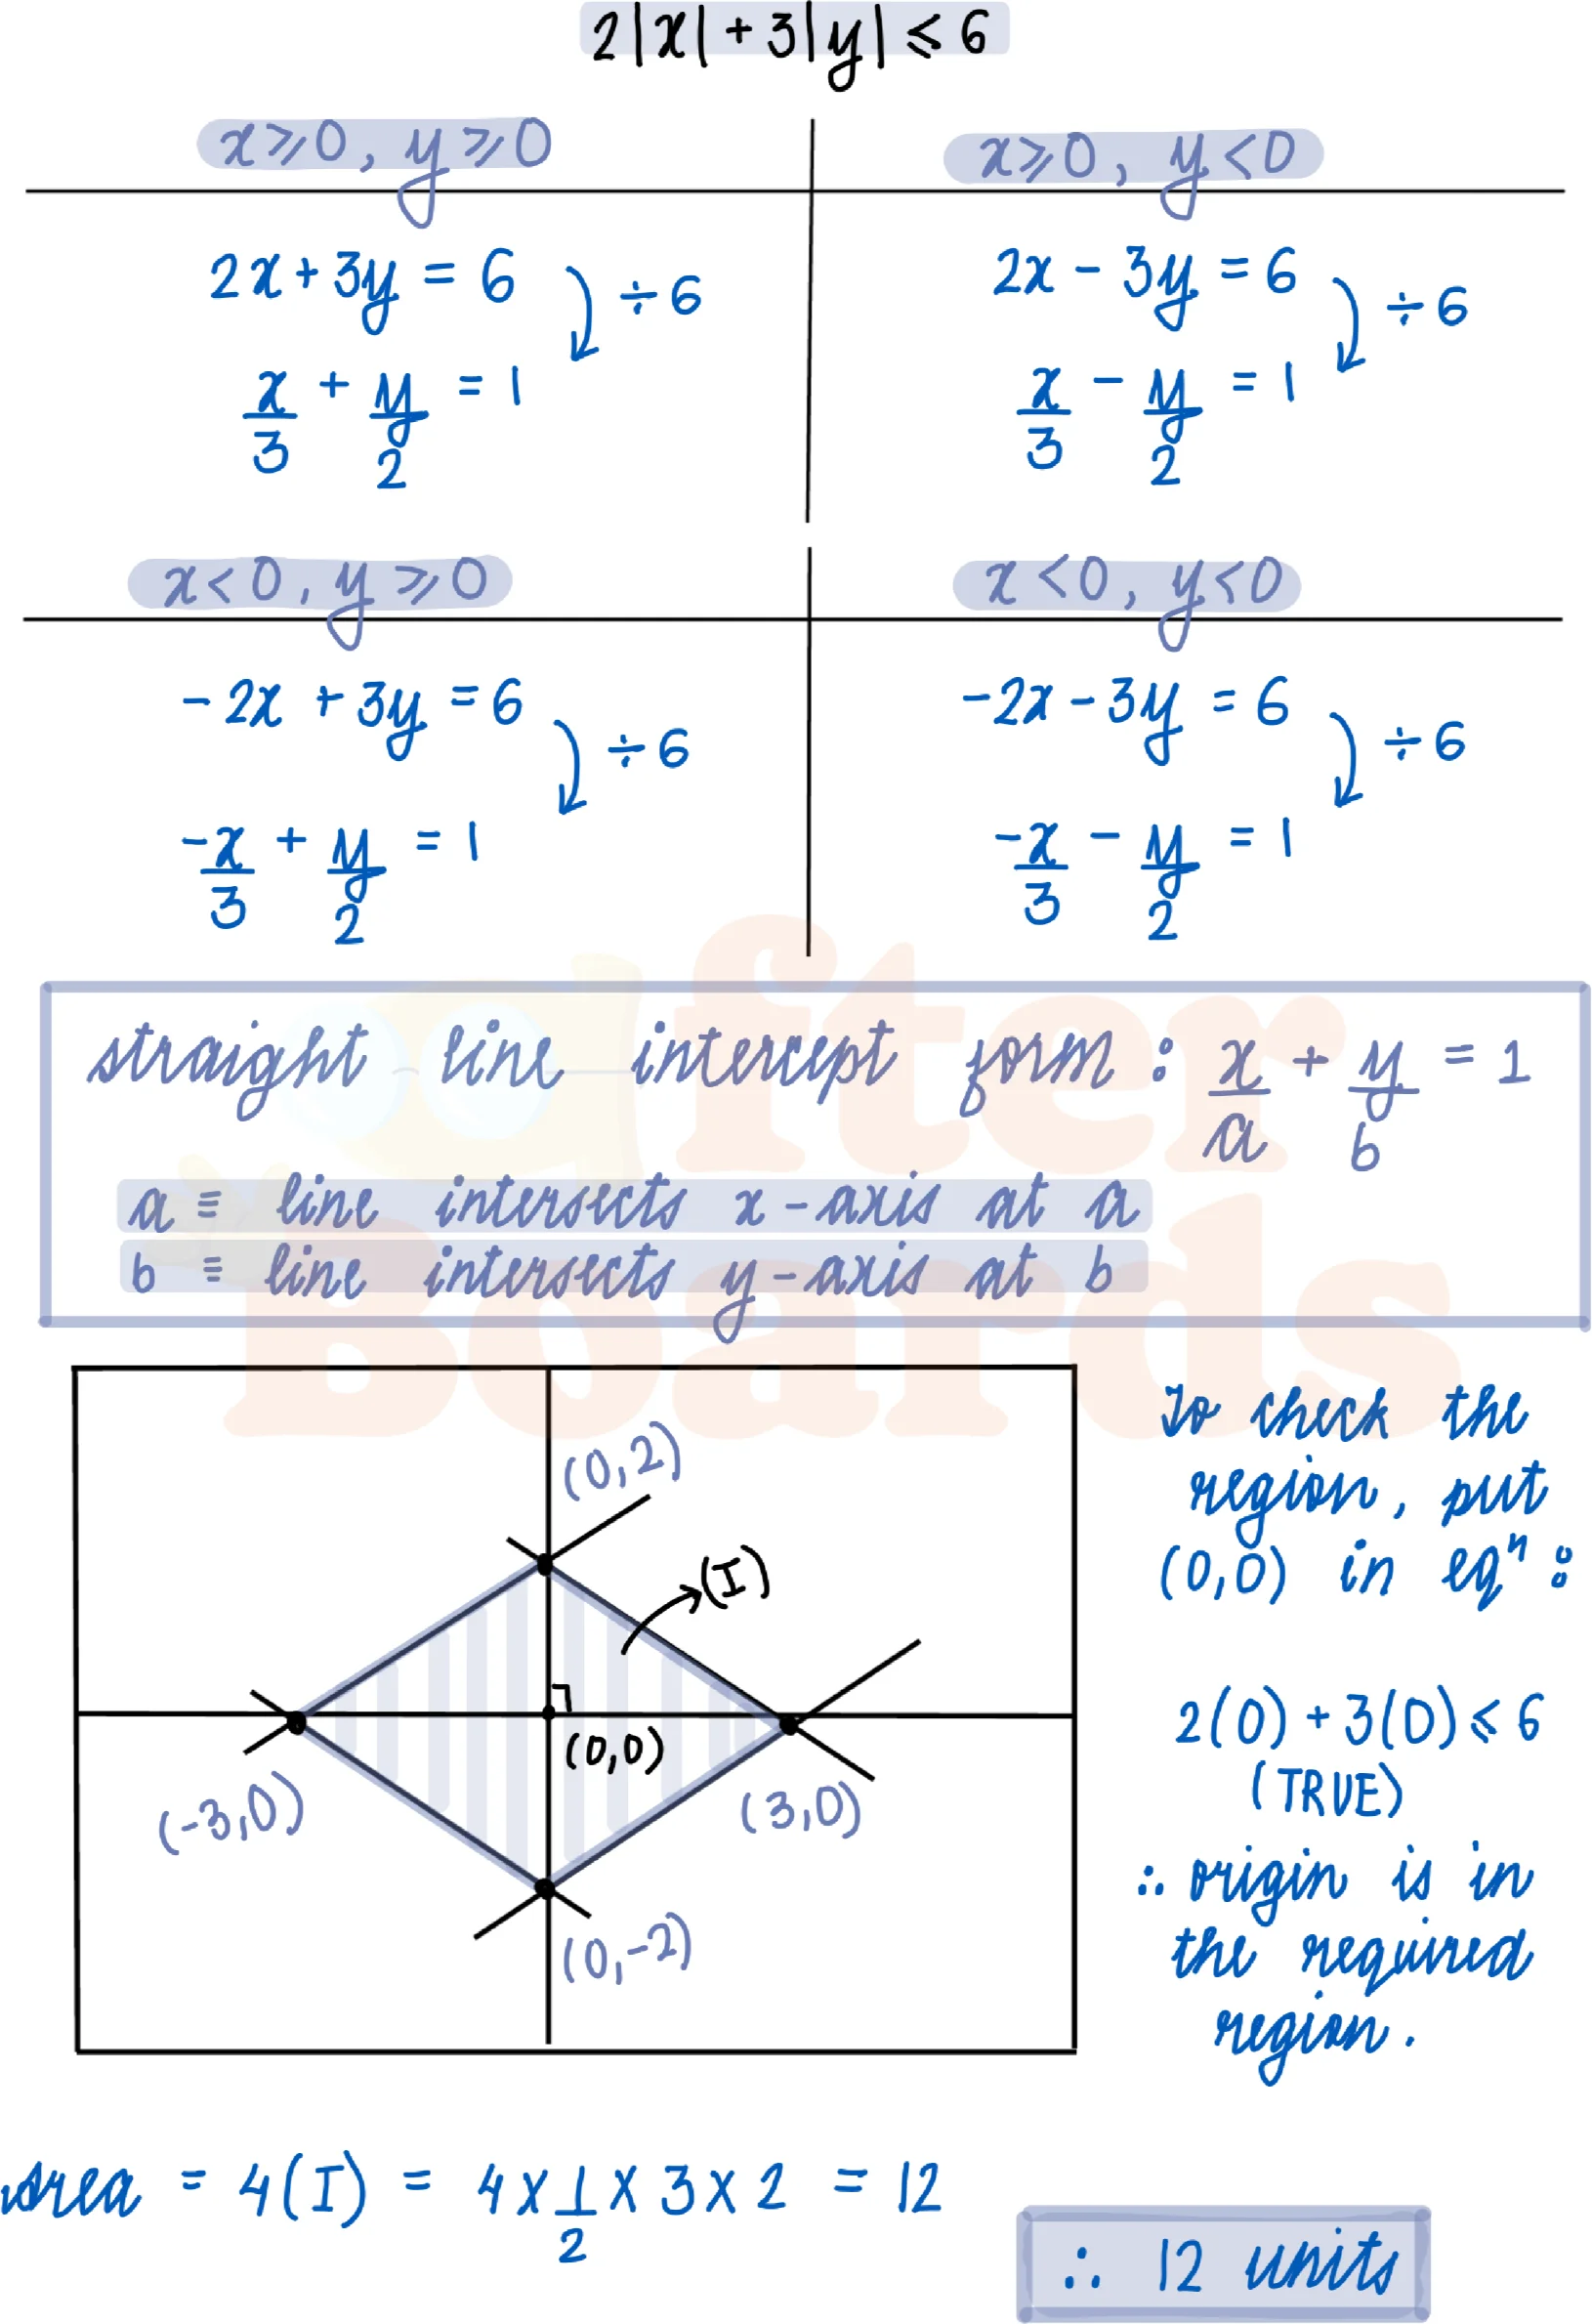 2|x| + 3|y| ⩽ 6
x ⩾ 0, y ⩾ 0
x ⩾ 0, y < 0
2x + 3y = 6
÷ 6
2x - 3y = 6
÷ 6
x/3 + y/2 = 1
x/3 - y/2 = 1
x < 0, y ⩾ 0
x < 0, y < 0
-2x + 3y = 6
÷ 6
-2x - 3y = 6
÷ 6
-x/3 + y/2 = 1
-x/3 - y/2 = 1
straight line intercept form : x/a + y/b = 1
a ≡ line intersects x-axis at a
b ≡ line intersects y-axis at b
after
Boards
(0,2)
(I)
(0,0)
(-3,0)
(3,0)
(0,-2)
To check the
region, put
(0,0) in eqⁿ :
2(0) + 3(0) ⩽ 6
(TRUE)
∴ origin is in
the required
region.
Area = 4(I) = 4 x 1/2 x 3 x 2 = 12
∴ 12 units